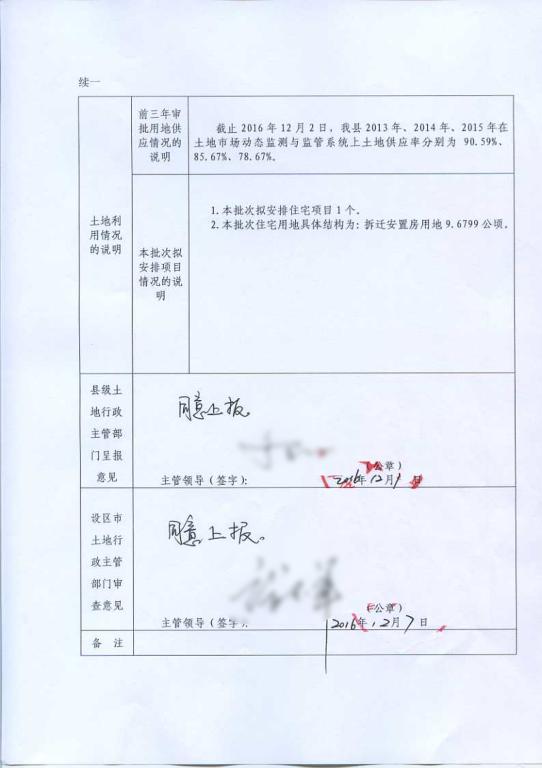 续一
前三年审
批用地供
应情况的
说明
截止2016年12月2日，我县2013年、2014年、2015年在
土地市场动态监测与监管系统上土地供应率分别为 90.59%、
85.67%、78.67%。
土地利
用情况
的说明
本批次拟
安排项目
情况的说
明
1.本批次拟安排住宅项目1个。
2.本批次住宅用地具体结构为：拆迁安置房用地9.6799公顷。
县级土
地行政
主管部
门呈报
意见
同意上报。
（公章）
主管领导（签字）：
2016年12月1日
设区市
土地行
政主管
部门审
查意见
同意上报。
（公章）
主管领导（签字）：
2016年12月7日
备 注